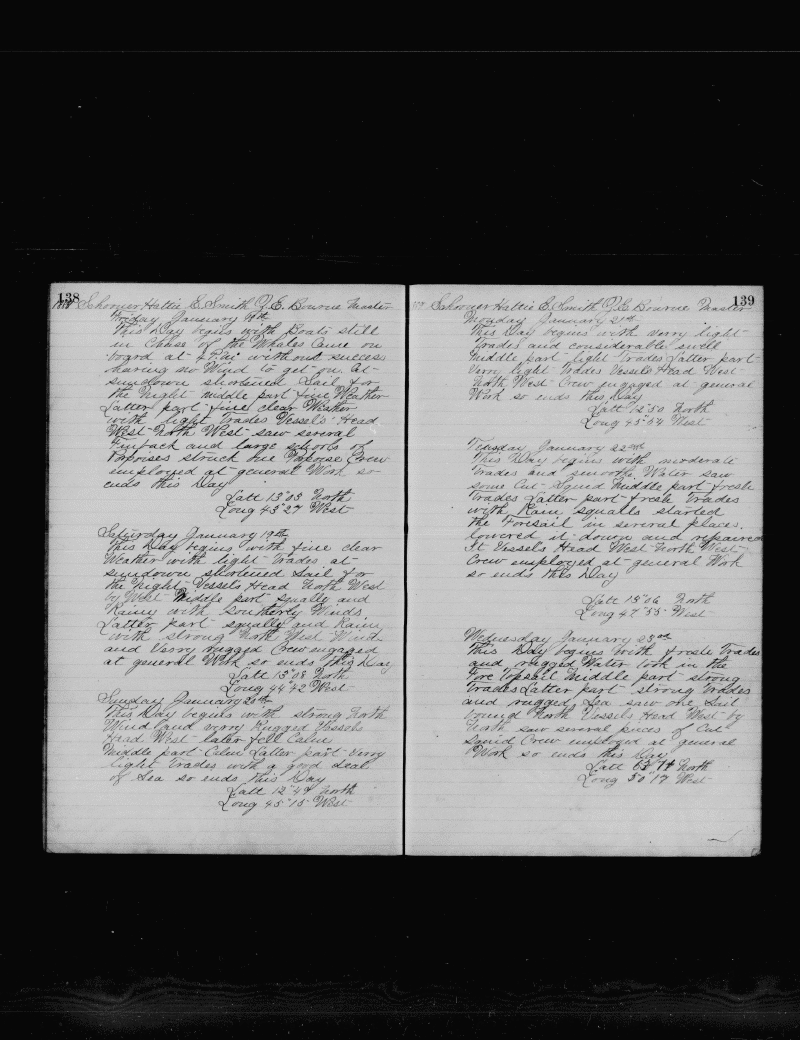 138
Schooner Hattie E. Smith Z. E. Bourne Master
Friday January 18th
This Day begins with Boats still
in Chase of the Whales Came on
board at without success
having no Wind to get on. At
sundown shortened Sail for
the Night middle part fine Weather
Latter part fine clear Weather
with light Trades Vessels Head
West North West saw several
Finback and large schools of
Porpoises struck one Porpoise Crew
employed at general Work so
ends this Day
Latt 13"03 North
Long 43"27 West
Saturday January 19th
This Day begins with fine clear
Weather with light Trades at
sundown shortened Sail for
the Night Vessels Head North West
by West Middle part squally and
Rainy with Southerly Winds
Latter part squally and Rainy
with strong North West Wind
and Verry rugged Crew engaged
at general Work so ends this Day
Latt 13"08 North
Long 44"42 West
Sunday January 20th
This Day begins with strong North
Wind and verry Rugged Vessels
Head West later fell Calm
Middle part Calm Latter part Verry
light Trades with a good deal
of Sea so ends this Day
Latt 12"49 North
Long 45"15 West
139
Schooner Hattie E. Smith Z. E. Bourne Master
Monday January 21st
This Day begins with verry light
Trades and considerable swell
Middle part light Trades Latter part
Verry light Trades Vessels Head West
North West Crew engaged at general
Work so ends this Day
Latt 12"50 North
Long 45"54 West
Tuesday January 22nd
This Day begins with moderate
Trades and smooth Water saw
some Cut Squid Middle part fresh
Trades Latter part fresh Trades
with Rain squalls started
the Foresail in several places
lowered it down and repaired
It Vessels Head West North West
Crew employed at general Work
so ends this Day
Latt 13"06 North
Long 47"55 West
Wednesday January 23rd
This Day begins with fresh Trades
and rugged Water took in the
Fore Topsail Middle part strong
Trades Latter part strong Trades
and rugged Sea saw one Sail
bound North Vessels Head West by
North saw several pieces of Cut
Squid Crew employed at general
Work so ends this Day
Latt North
Long 50"17 West